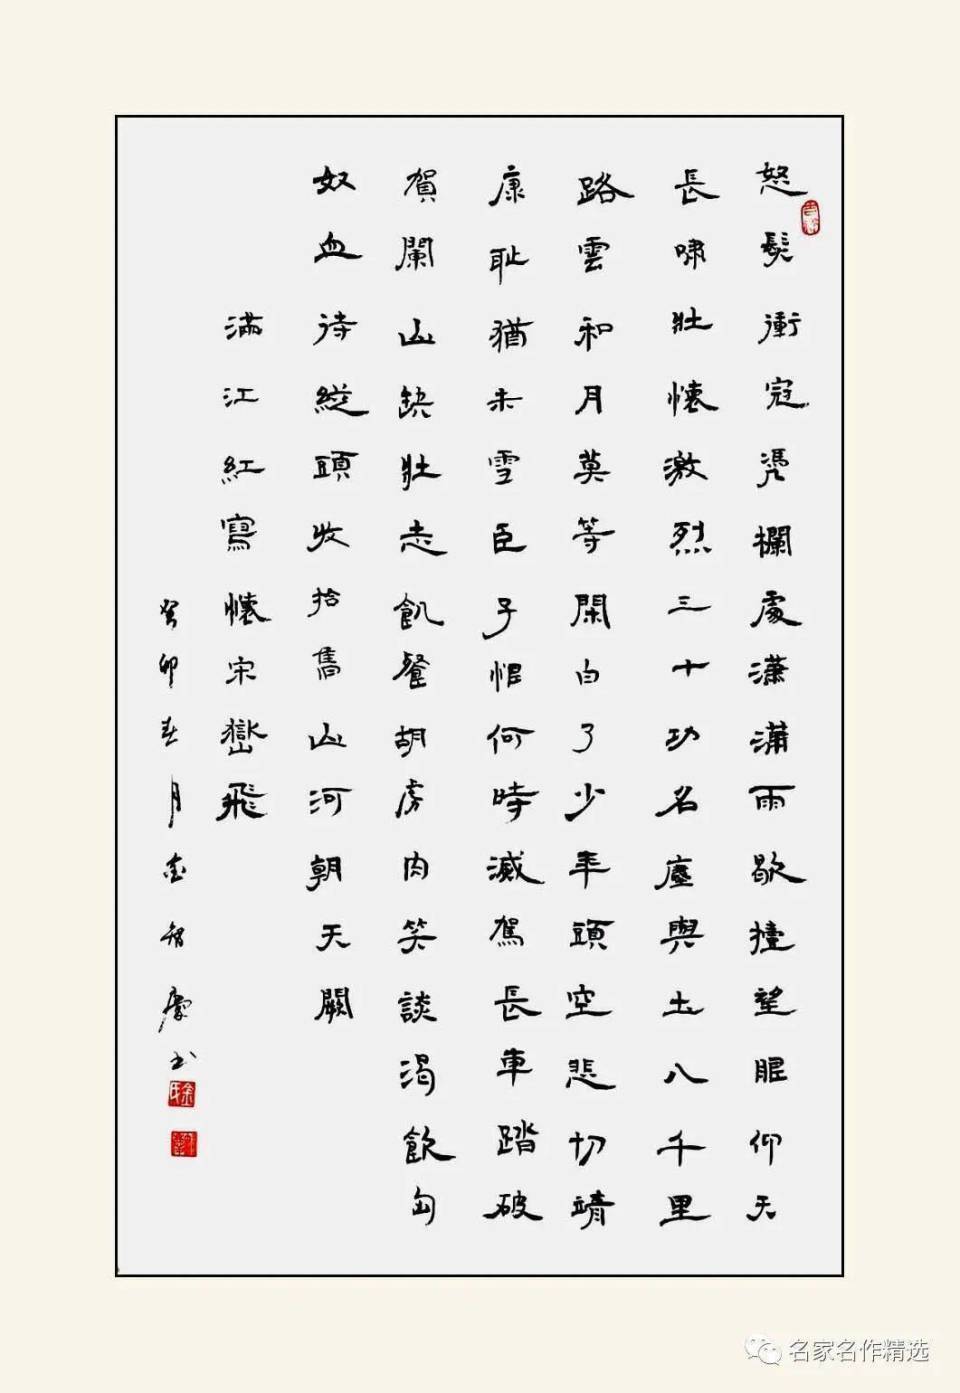 怒髮衝冠凴欄處瀟瀟雨歇擡望眼仰天
長嘯壯懷激烈三十功名塵與土八千里
路雲和月莫等閑白了少年頭空悲切靖
康耻猶未雪臣子恨何時滅駕長車踏破
賀闌山缺壯志飢餐胡虜肉笑談渴飲匈
奴血待縱頭收拾舊山河朝天闕
滿江紅寫懷宋嶽飛
癸卯春月金智慶书
名家名作精选